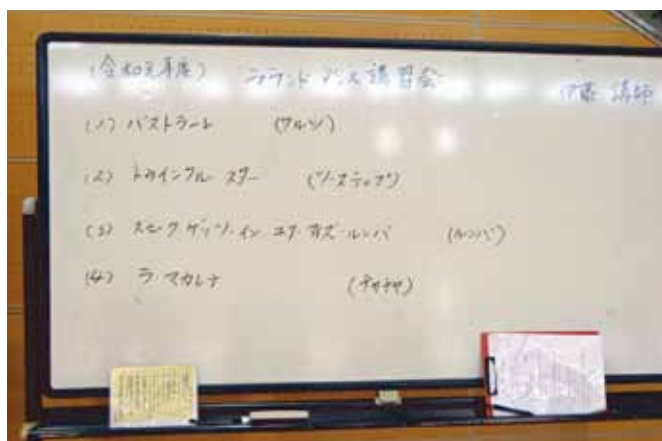 (令和元年度) ラウンドダンス講習会 伊藤 講師
(1) パストラーレ (ワルツ)
(2) トゥインクル スター (ツーステップ)
(3) スモーク ゲッツ イン ユア アイズ ルンバ (ルンバ)
(4) ラ マカレナ (チャチャ)